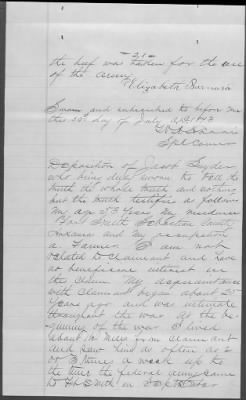 -21-
the beef was taken for the use
of the army
Elizabeth
Sworn and subscribed to before me
this 25th day of July
Spl Comr
Deposition of Jacob Snyder
who being duly sworn to tell the
truth the whole truth and nothing
but the truth testifies as follows
My age 53 Years My residence
Fort Smith Sebastian County
Arkansas and My occupation
a Farmer. I am not
related to claimant and have
no beneficial interest in
the claim. My acquaintance
with claimant began about 25
years ago and was intimate
throughout the war. At the be-
gining of the war I lived
about miles from claimant
and saw him as often as 2
or 3 times a week up to
the time the federal army came
to Ft Smith in